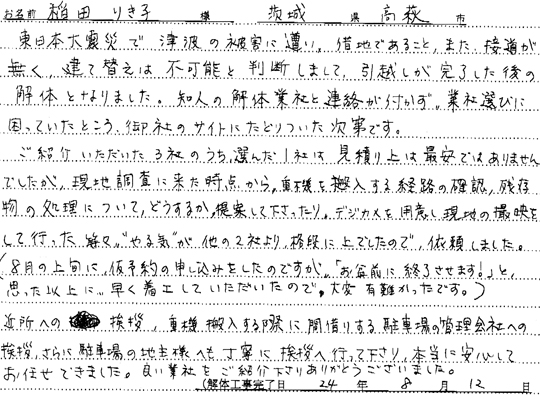 お名前 稲田 りき子 様 茨城 県 高萩 市
東日本大震災で津波の被害に遭い。借地であること、また、接道が
無く、建て替えは不可能と判断しまして、引越しが完了した後の
解体となりました。知人の解体業社と連絡が付かず。業社選びに
困っていたところ、御社のサイトにたどりついた次第です。
ご紹介いただいた3社のうち、選んだ1社は見積り上は最安ではありません
でしたが、現地調査に来た時点から、重機を搬入する経路の確認、残存
物の処理について、どうするか、提案して下さったり。デジカメを用意し現地の撮映を
して行った等々、"やる気"が他の2社より、格段に上でしたので、依頼しました。
(8月の上旬に、仮予約の申し込みをしたのですが、「お盆前に終了させます!」と、
思った以上に…早く着工していただいたので。大変有難かったです。)
近所への 挨拶、重機搬入する際に間借りする駐車場の管理会社への
挨拶、さらに駐車場の地主様へも丁寧に挨拶へ行って下さり、本当に安心して
お任せできました。良い業社をご紹介下さりありがとうございました。
(解体工事完了日 24 年 8 月 12 日